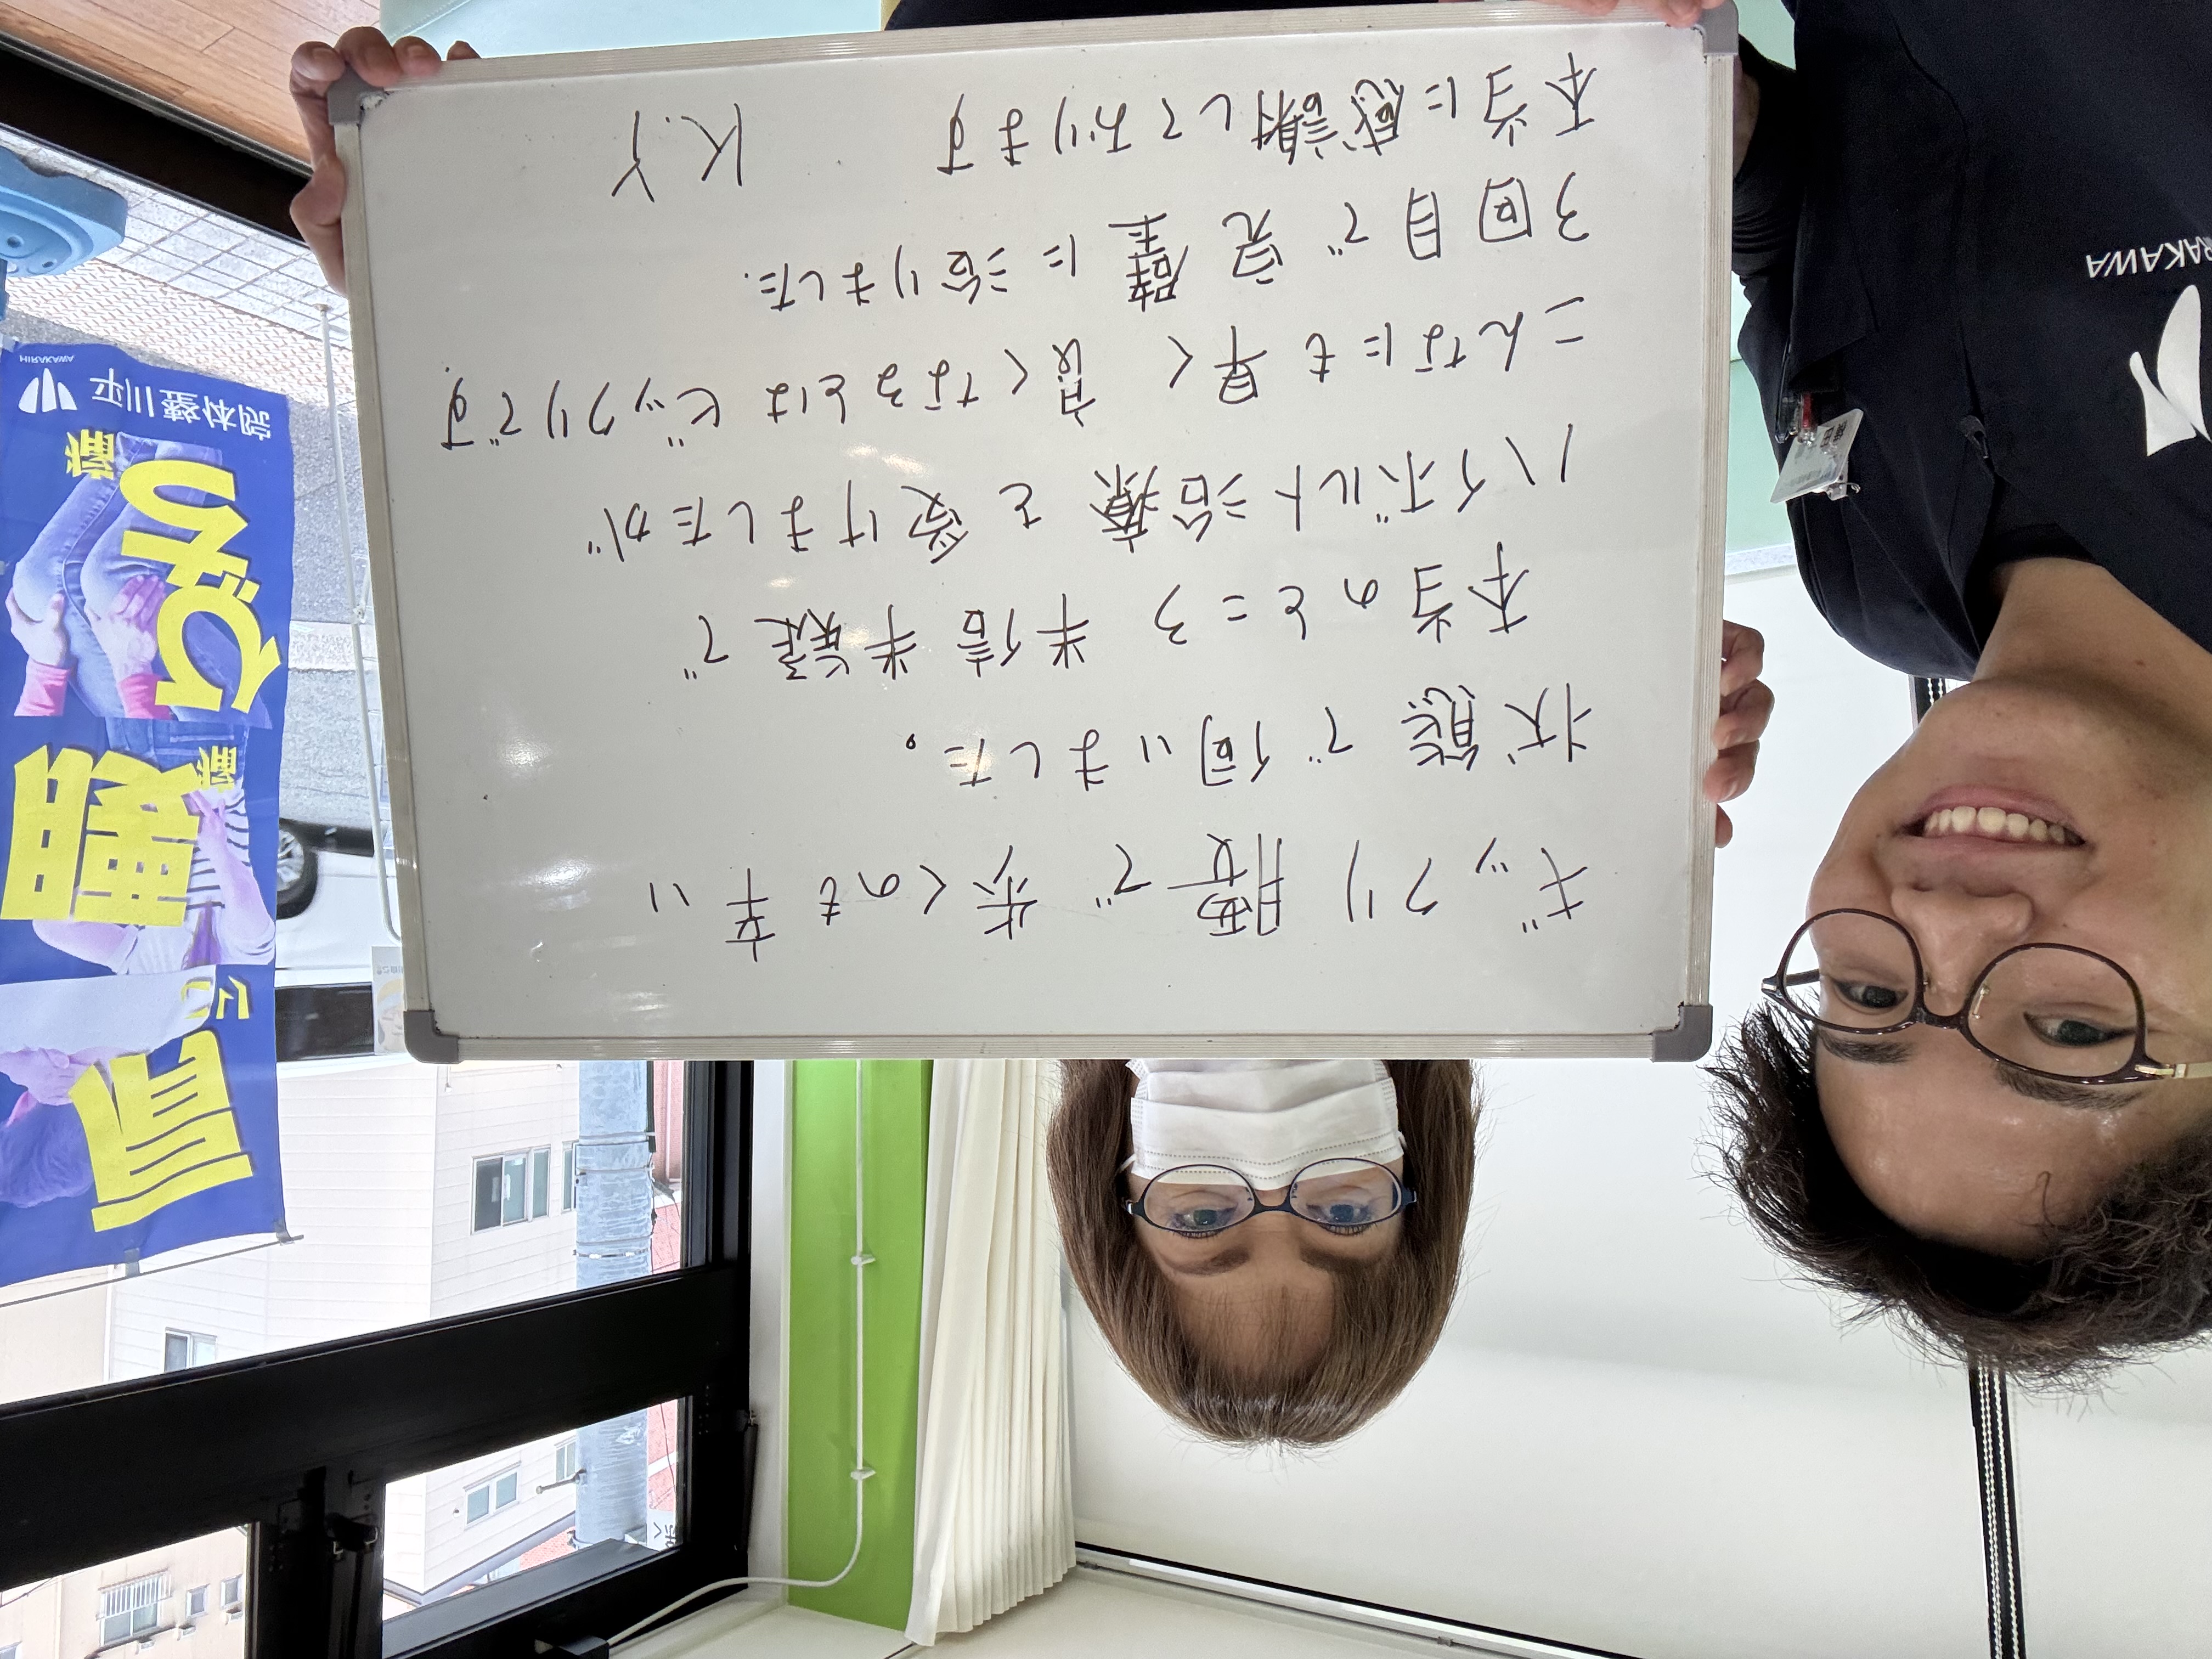 ギックリ腰で歩くのも辛い
状態で伺いました。
本当のところ半信半疑で
ハイボルト治療を受けましたが
こんなにも早く良くなるとはビックリです
3回目で完璧に治りました.
本当に感謝しております K.Y
肩
こり
腰
痛
ひざ
痛
平川整体院
HIRAKAWA
IRAKAWA